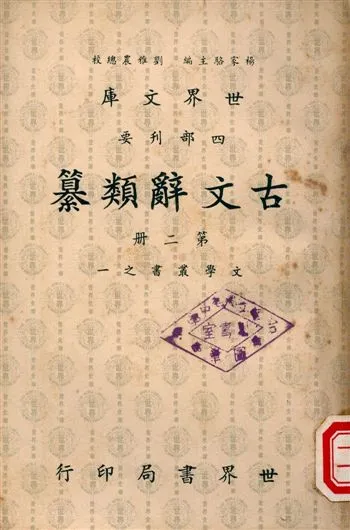 楊家駱主編 劉雅農總校
世界文庫
四部刊要
古文辭類纂
第二册
文學叢書之一
世界書局印行